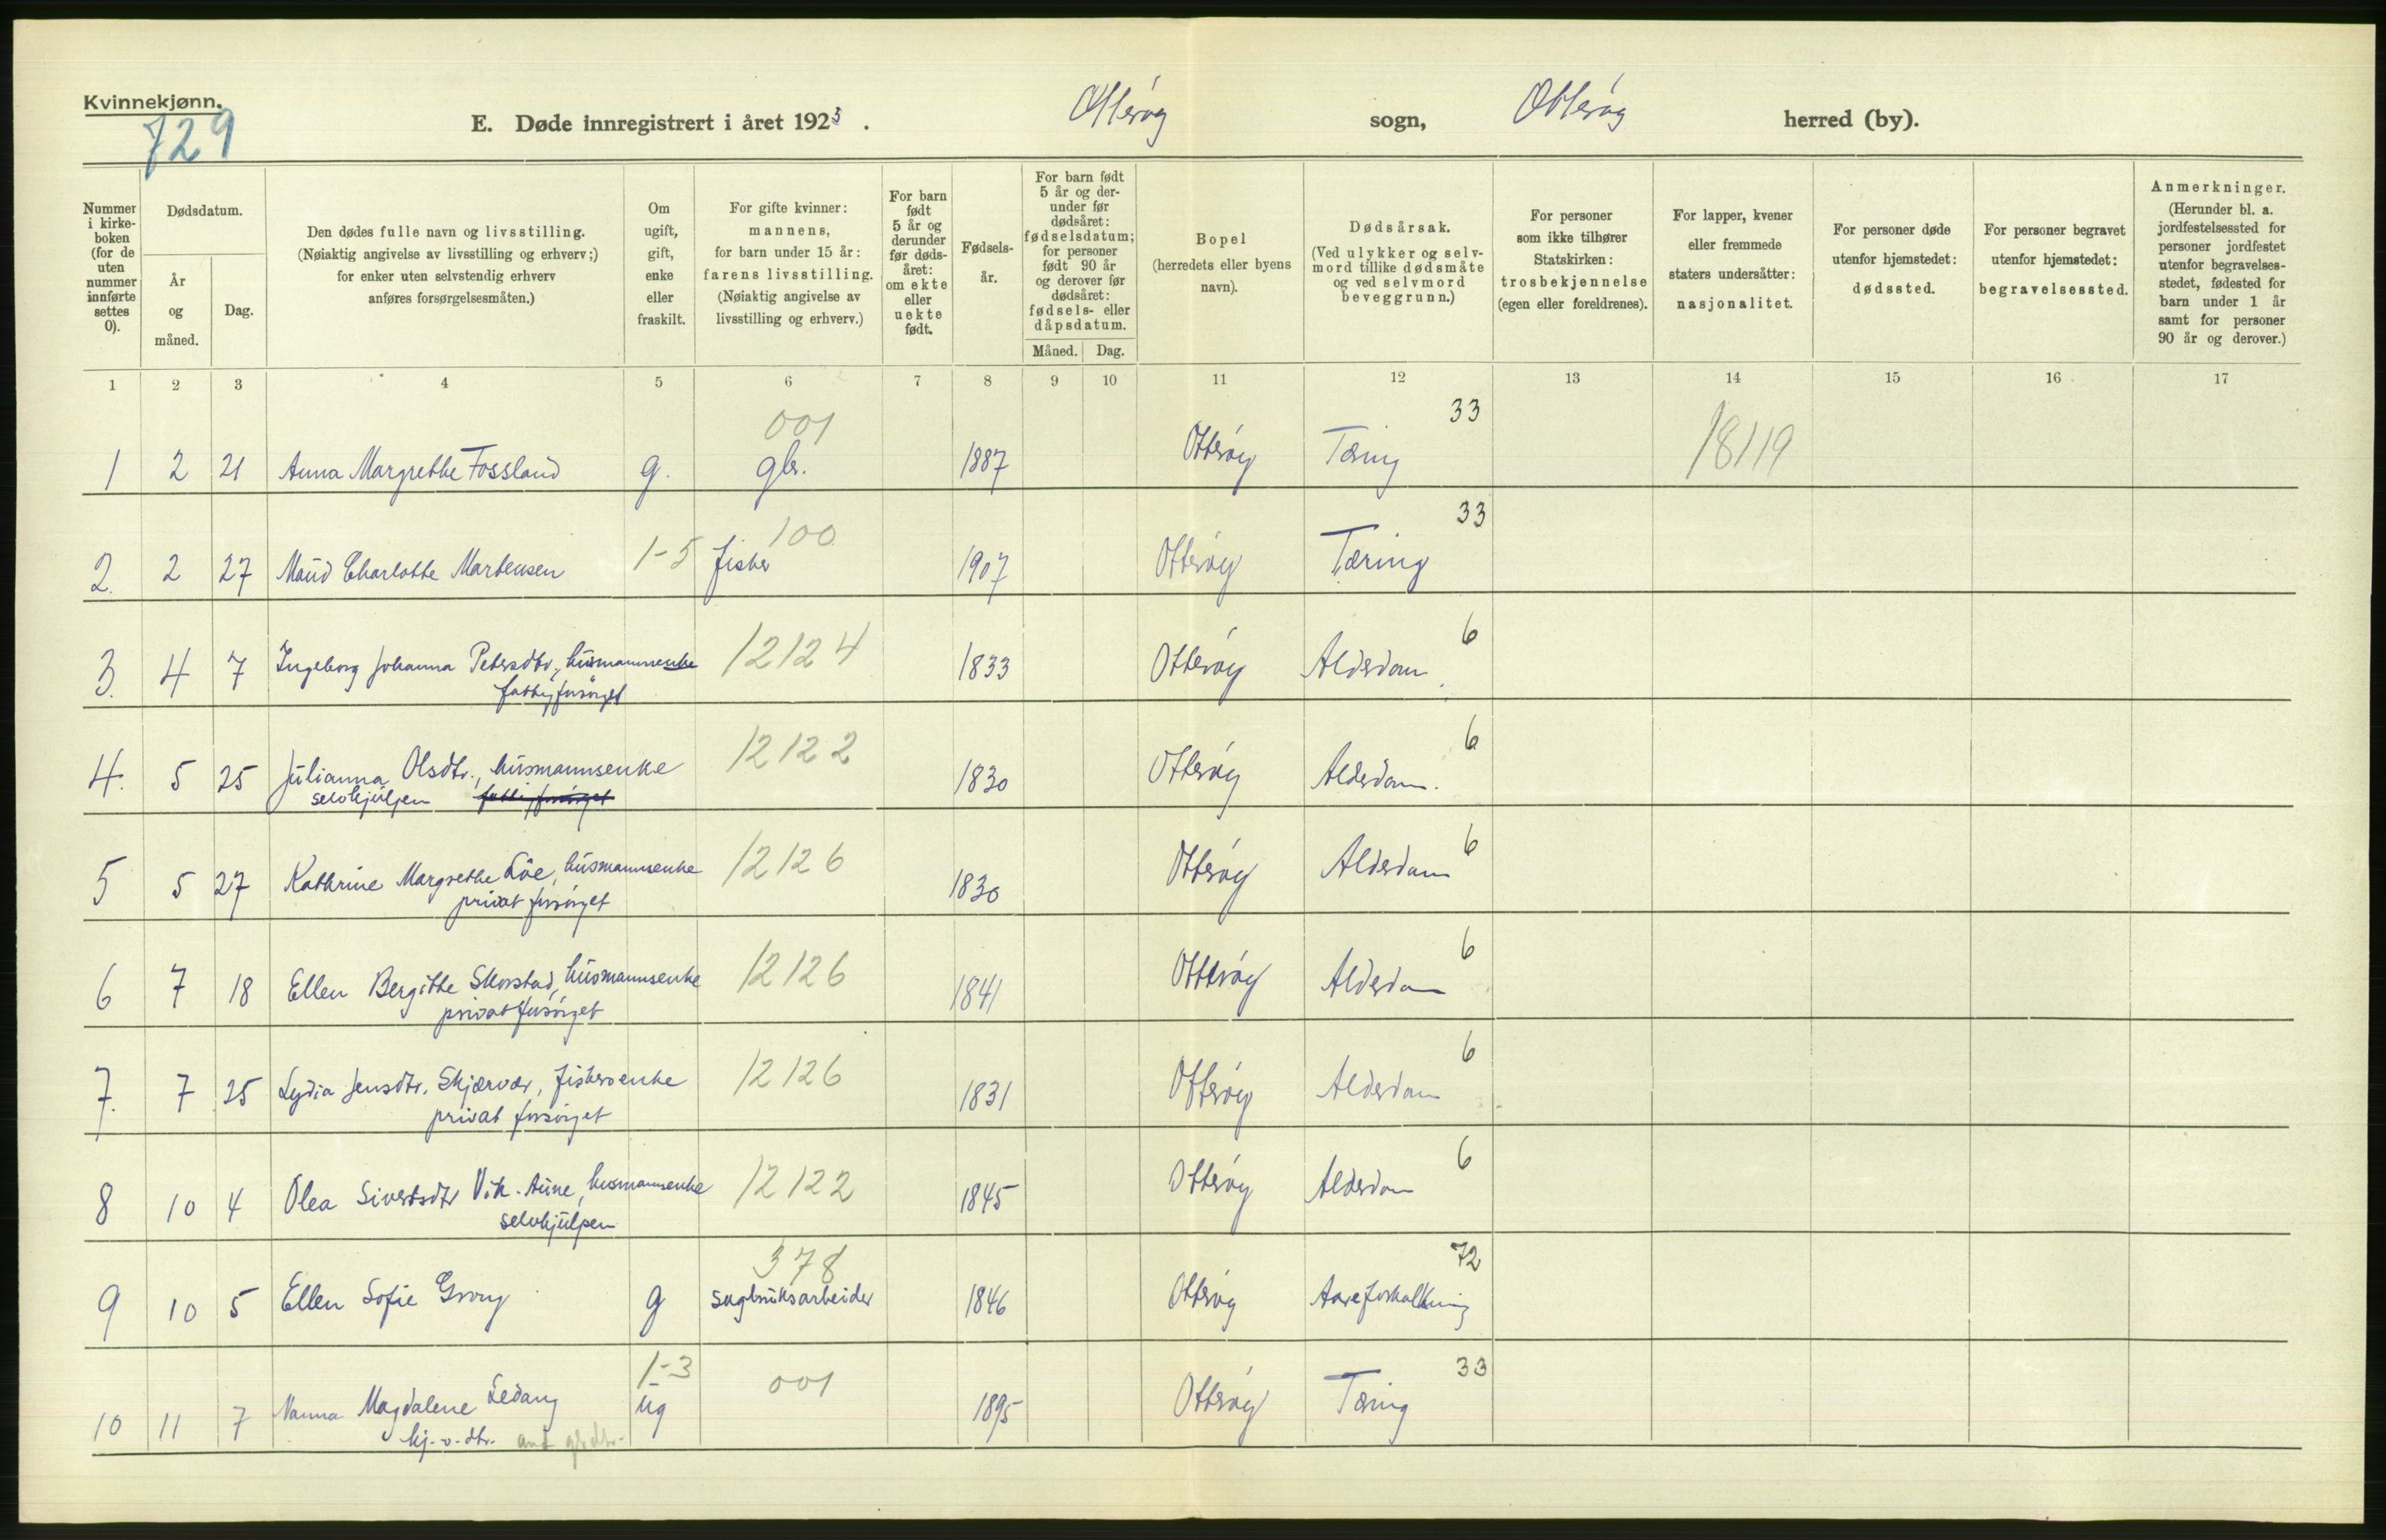 Kvinnekjønn.
729
E. Døde innregistrert i året 1923.
Otterøy sogn, Otterøy herred (by).
Nummer i kirkeboken (for de uten nummer innførte settes 0).
Dødsdatum.
År og måned.
Dag.
Den dødes fulle navn og livsstilling.
(Nøiaktig angivelse av livsstilling og erhverv;)
for enker uten selvstendig erhverv
anføres forsørgelsesmåten.)
Om ugift, gift, enke eller fraskilt.
For gifte kvinner: mannens, for barn under 15 år: farens livsstilling. (Nøiaktig angivelse av livsstilling og erhverv.)
For barn født 5 år og derunder før dødsåret: om ekte eller uekte født.
Fødselsår.
For barn født 5 år og derunder før dødsåret: fødselsdatum; for personer født 90 år og derover før dødsåret: fødsels- eller dåpsdatum.
Måned. Dag.
Bopel (herredets eller byens navn).
Dødsårsak. (Ved ulykker og selvmord tillike dødsmåte og ved selvmord beveggrunn.)
For personer som ikke tilhører Statskirken: trosbekjennelse (egen eller foreldrenes).
For lapper, kvener eller fremmede staters undersåtter: nasjonalitet.
For personer døde utenfor hjemstedet: dødssted.
For personer begravet utenfor hjemstedet: begravelsessted.
Anmerkninger. (Herunder bl. a. jordfestelsessted for personer jordfestet utenfor begravelsesstedet, fødested for barn under 1 år samt for personer 90 år og derover.)
1 2 3 4 5 6 7 8 9 10 11 12 13 14 15 16 17
001 33
1 2 21 Anna Margrethe Fossland g. gbr. 1887 Otterøy Tæring 18119
100 33
2. 2 27 Maud Charlotte Martensen 1-5 fisker 1907 Otterøy Tæring
3. 4 7 Ingeborg Johanna Petersdtr., husmannsenke 12124 1833 Otterøy Alderdom 6
fattigforsørget
4. 5 25 Julianna Olsdtr., husmannsenke 12122 1830 Otterøy Alderdom. 6
selvhjulpen fattigforsørget
5 5 27 Kathrine Margrethe Löe, husmannsenke 12126 1830 Otterøy Alderdom 6
privat forsörget
6 7 18 Ellen Bergithe Skorstad, husmannsenke 12126 1841 Otterøy Alderdom 6
privat forsörget
7. 7 25 Lydia Jensdtr. Skjærvær, fiskersenke 12126 1831 Otterøy Alderdom 6
privat forsörget
8 10 4 Olea Sivertsdtr Vik-Aune, husmannsenke 12122 1845 Otterøy Alderdom 6
selvhjulpen
378 72
9 10 5 Ellen Sofie Grong g sagbruksarbeider 1846 Otterøy Aareforkalkning
1-3 001 33
10 11 7 Nanna Magdalene Ledang ug 1895 Otterøy Tæring
hj. v. dtr. gbdtr.